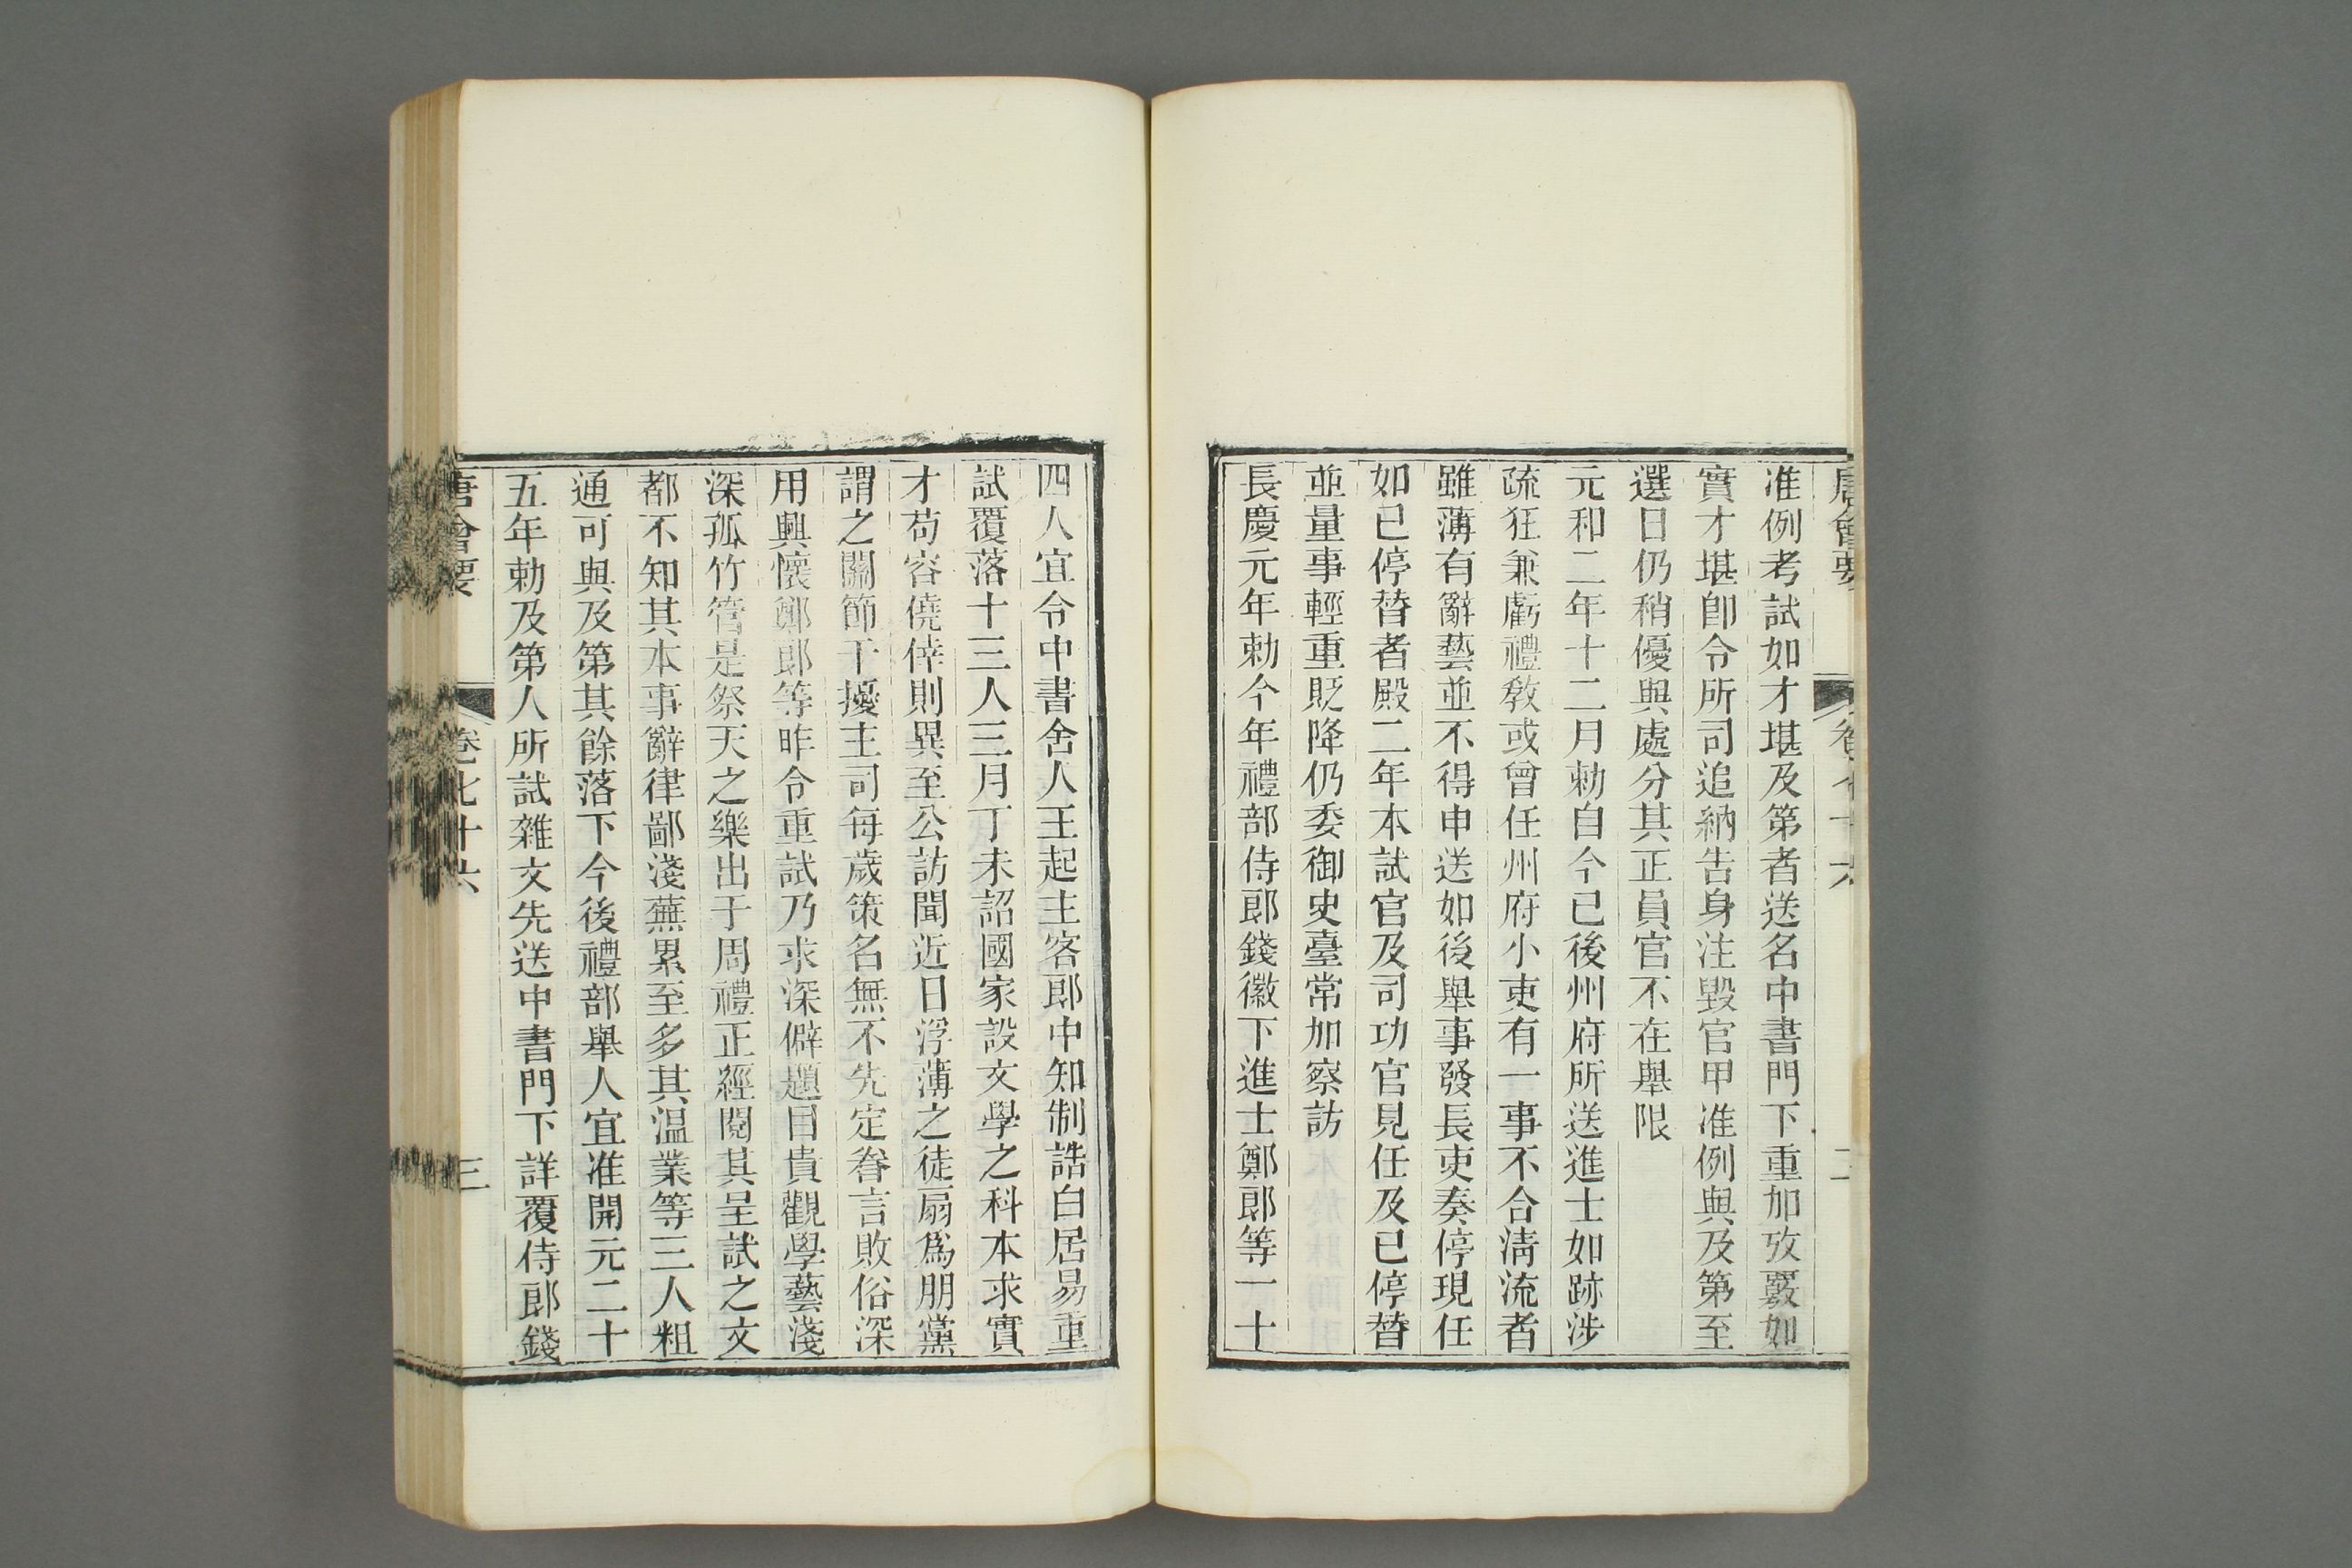 唐會要 卷七十六 二
准例考試如才堪及第者送名中書門下重加攷覈如
實才堪卽令所司追納告身注毀官甲准例與及第至
選日仍稍優與處分其正員官不在舉限
元和二年十二月勅自今已後州府所送進士如跡涉
疏狂兼虧禮敎或曾任州府小吏有一事不合清流者
雖薄有辭藝並不得申送如後舉事發長吏奏停現任
如已停替者殿二年本試官及司功官見任及已停替
並量事輕重貶降仍委御史臺常加察訪
長慶元年勅今年禮部侍郎錢徽下進士鄭郎等一十
四人宜令中書舍人王起主客郎中知制誥白居易重
試覆落十三人三月丁未詔國家設文學之科本求實
才苟容僥倖則異至公訪聞近日浮薄之徒扇爲朋黨
謂之關節干擾主司每歲策名無不先定眷言敗俗深
用興懷鄭郎等昨令重試乃求深僻題目貴觀學藝淺
深孤竹管是祭天之樂出于周禮正經閱其呈試之文
都不知其本事辭律鄙淺蕪累至多其溫業等三人粗
通可與及第其餘落下今後禮部舉人宜准開元二十
五年勅及第人所試雜文先送中書門下詳覆侍郎錢
唐會要 卷七十六 三